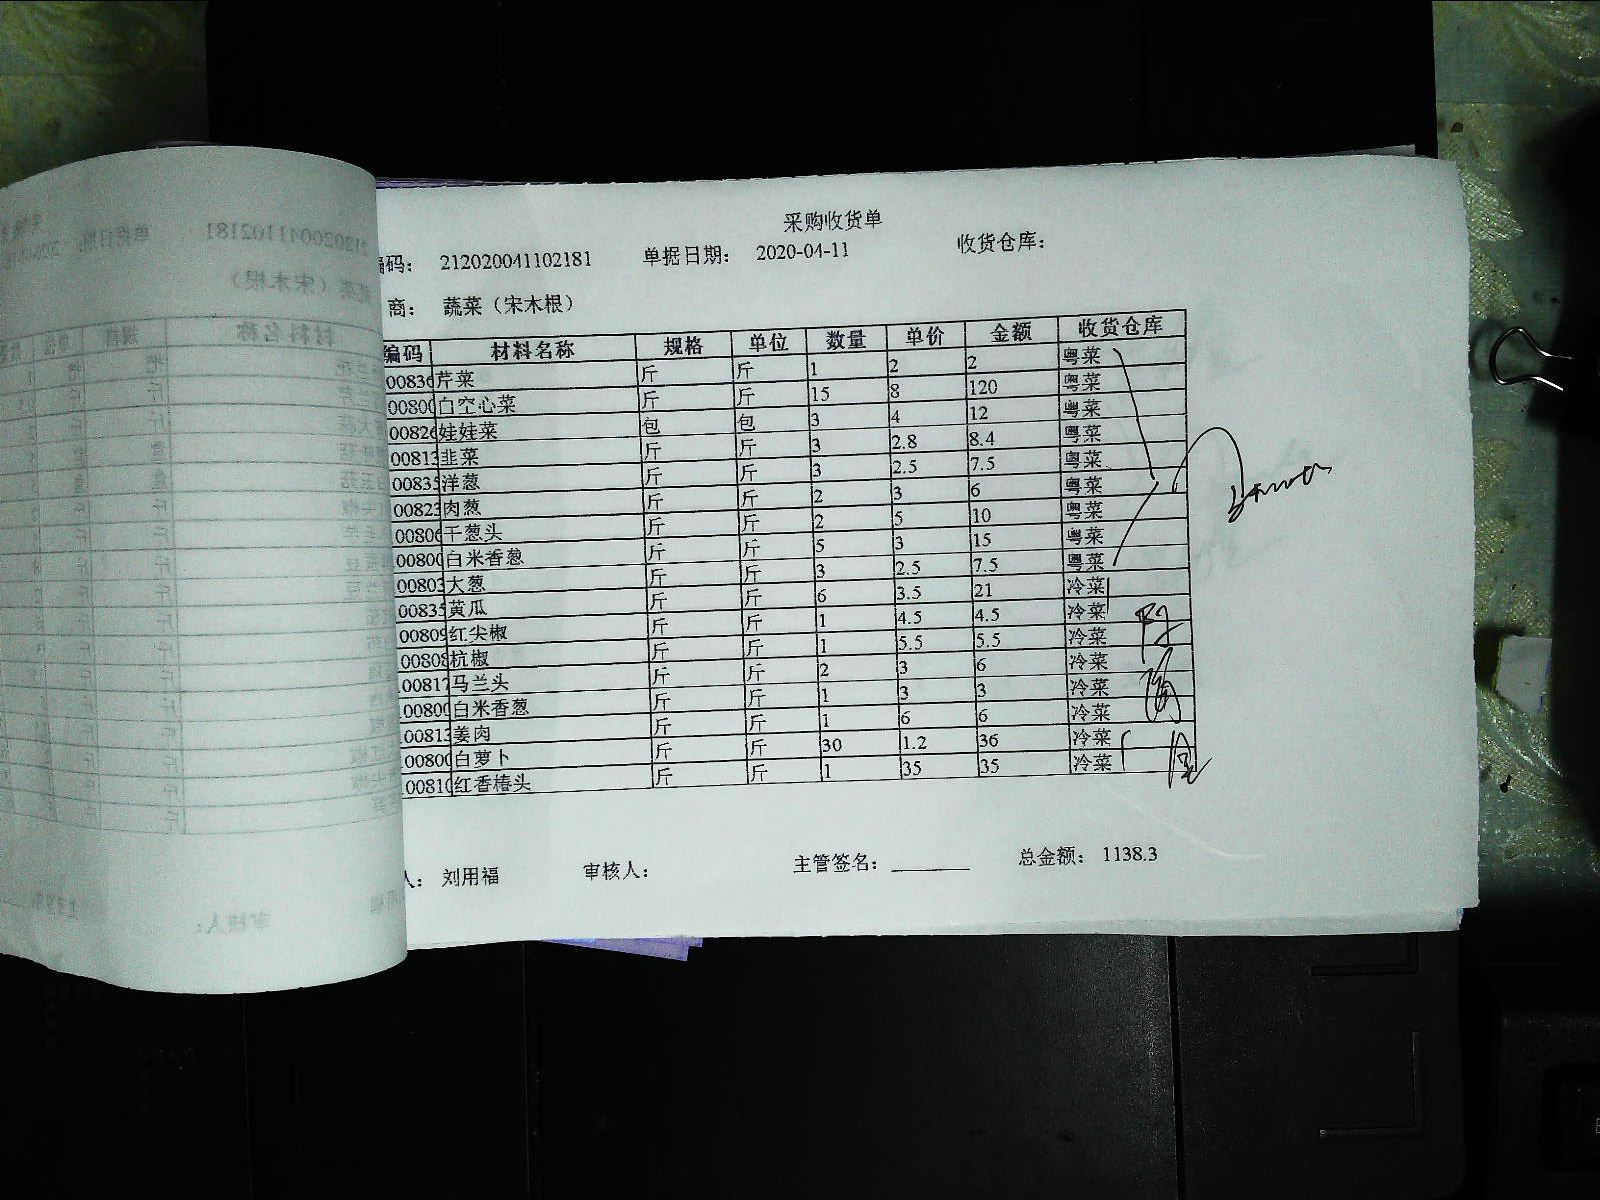 采购收货单
编码： 212020041102181 单据日期： 2020-04-11 收货仓库：
商： 蔬菜（宋木根）
编码 材料名称 规格 单位 数量 单价 金额 收货仓库
00836 芹菜 斤 斤 1 2 2 粤菜
00800 白空心菜 斤 斤 15 8 120 粤菜
00826 娃娃菜 包 包 3 4 12 粤菜
00813 韭菜 斤 斤 3 2.8 8.4 粤菜
00835 洋葱 斤 斤 3 2.5 7.5 粤菜
00823 肉葱 斤 斤 2 3 6 粤菜
00806 干葱头 斤 斤 2 5 10 粤菜
00800 白米香葱 斤 斤 5 3 15 粤菜
00803 大葱 斤 斤 3 2.5 7.5 粤菜
00835 黄瓜 斤 斤 6 3.5 21 冷菜
00809 红尖椒 斤 斤 1 4.5 4.5 冷菜
00808 杭椒 斤 斤 1 5.5 5.5 冷菜
00817 马兰头 斤 斤 2 3 6 冷菜
00800 白米香葱 斤 斤 1 3 3 冷菜
00813 姜肉 斤 斤 1 6 6 冷菜
00800 白萝卜 斤 斤 30 1.2 36 冷菜
00810 红香椿头 斤 斤 1 35 35 冷菜
人： 刘用福 审核人： 主管签名： 总金额： 1138.3